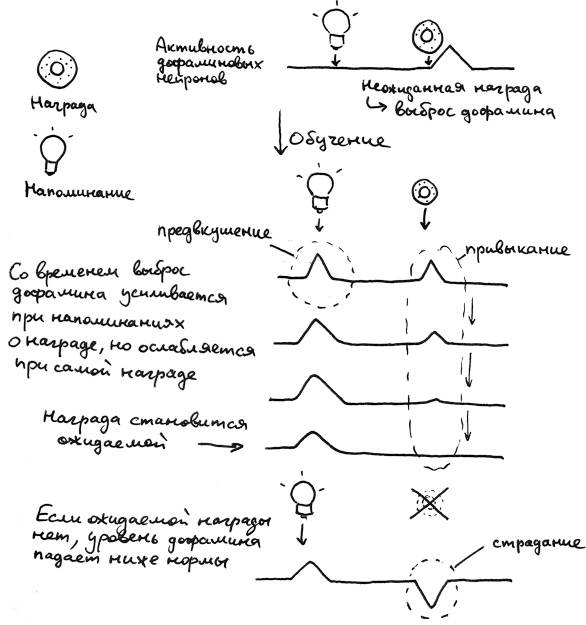 Награда
Напоминание
Активность
дофаминовых
нейронов
Неожиданная награда
выброс дофамина
Обучение
предвкушение
привыкание
Со временем выброс
дофамина усиливается
при напоминаниях
о награде, но ослабляется
при самой награде
Награда становится
ожидаемой
Если ожидаемой награды
нет, уровень дофамина
падает ниже нормы
страдание